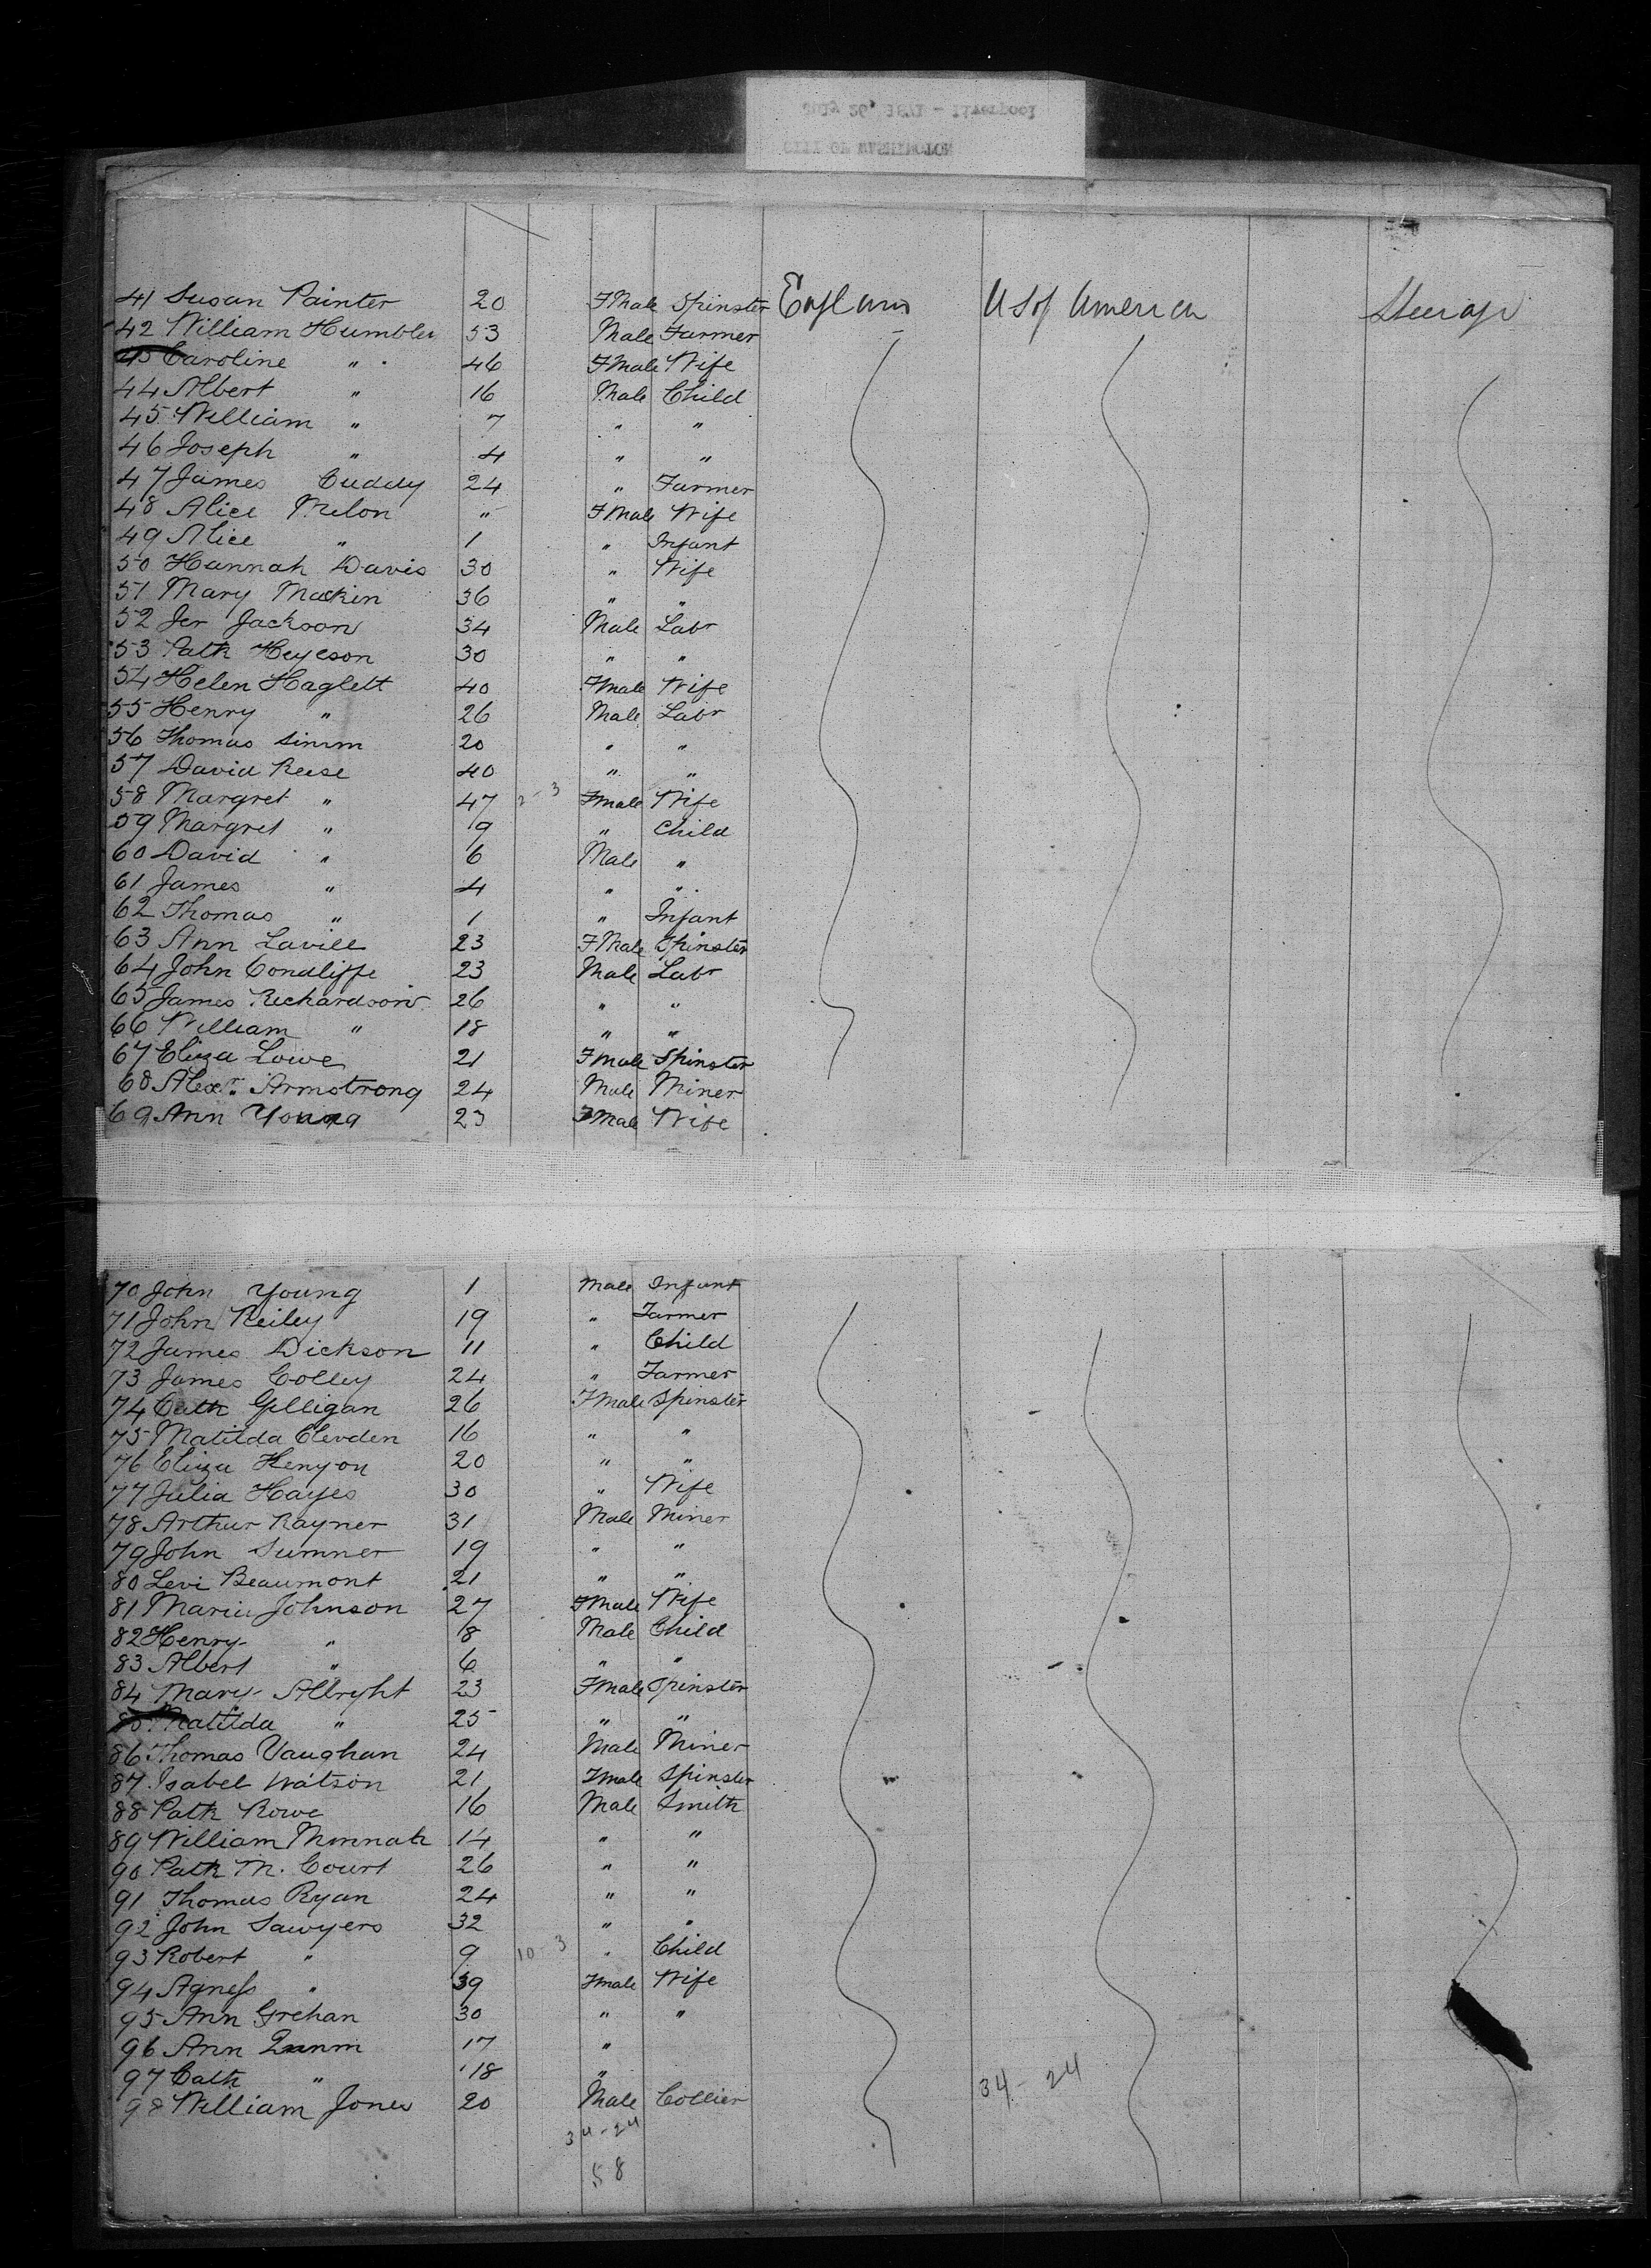 July 26, 1871 - Liverpool
CITY OF WASHINGTON
41 Susan Painter 20 FMale Spinster England US of America Steerage
42 William Humbler 53 Male Farmer
43 Caroline " 46 FMale Wife
44 Albert " 16 Male Child
45 William " 7 " "
46 Joseph " 4 " "
47 James Cuddy 24 " Farmer
48 Alice Melon " FMale Wife
49 Alice " 1 " Infant
50 Hannah Davis 30 " Wife
51 Mary Mackin 36 " "
52 Jer Jackson 34 Male Labr
53 Patk Heyeson 30 " "
54 Helen Haglett 40 FMale Wife
55 Henry " 26 Male Labr
56 Thomas Simm 20 " "
57 David Reese 40 " "
58 Margret " 47 2-3 Fmale Wife
59 Margret " 9 " Child
60 David " 6 Male "
61 James " 4 " "
62 Thomas " 1 " Infant
63 Ann Lavill 23 FMale Spinster
64 John Condliffe 23 Male Labr
65 James Richardson 26 " "
66 William " 18 " "
67 Eliza Lowe 21 Fmale Spinster
68 Alexr. Armstrong 24 Male Miner
69 Ann Young 23 FMale Wife
70 John Young 1 Male Infant
71 John Reiley 19 " Farmer
72 James Dickson 11 " Child
73 James Colley 24 " Farmer
74 Cath Gilligan 26 FMale Spinster
75 Matilda Clevden 16 " "
76 Eliza Kenyon 20 " "
77 Julia Hayes 30 " Wife
78 Arthur Rayner 31 Male Miner
79 John Sumner 19 " "
80 Levi Beaumont 21 " "
81 Maria Johnson 27 FMale Wife
82 Henry " 8 Male Child
83 Albert " 6 " "
84 Mary Albryht 23 FMale Spinster
85 Matilda " 25 " "
86 Thomas Vaughan 24 Male Miner
87 Isabel Watson 21 Fmale Spinster
88 Patk Rowe 16 Male Smith
89 William Minnah 14 " "
90 Patk M. Court 26 " "
91 Thomas Ryan 24 " "
92 John Sawyers 32 " "
93 Robert " 9 10-3 " Child
94 Agness " 39 Fmale Wife
95 Ann Grehan 30 " "
96 Ann Qunm 17 "
97 Cath " 18 "
98 William Jones 20 Male Collier
34-24
34-24
58